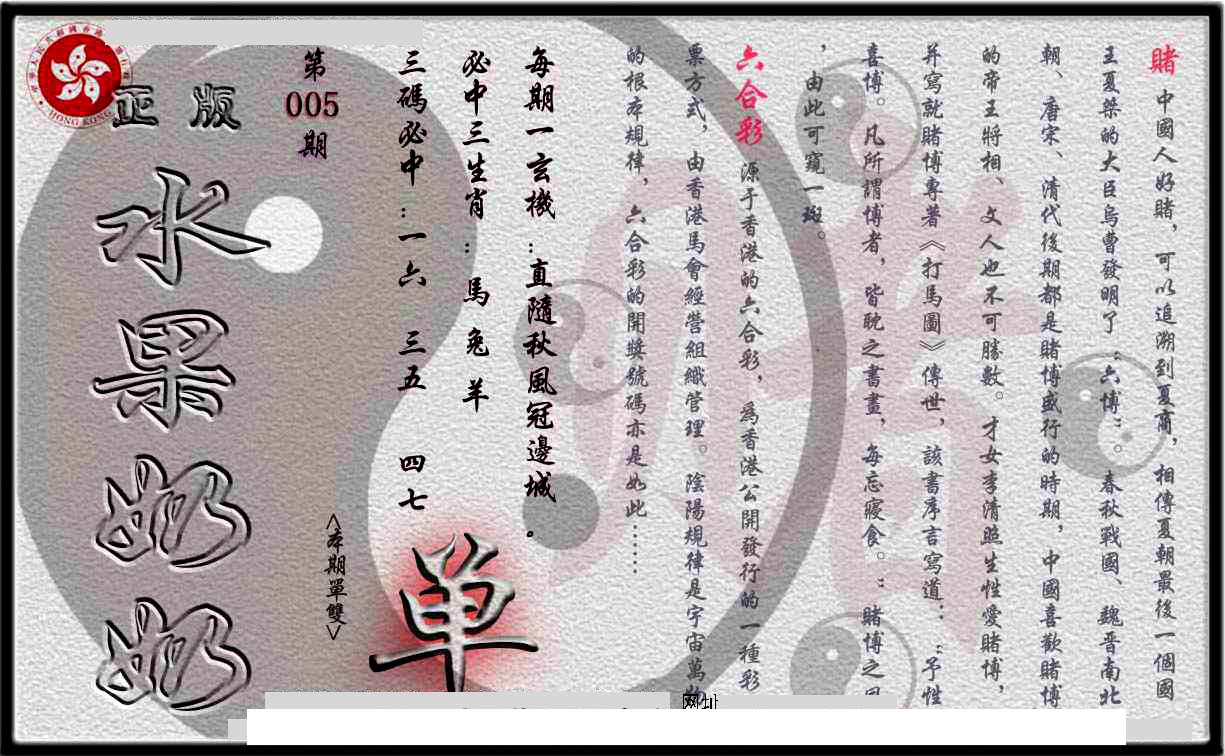 賭 中國人好賭，可以追溯到夏商，相傳夏朝最後一個國
王夏桀的大臣烏曹發明了“六博” 春秋戰國、魏晉南北
朝、唐宋、清代後期都是賭博盛行的時期，中國喜歡賭博
的帝王將相、文人也不可勝數。才女李清照生性愛賭博，
并寫就賭博專著《打馬圖》傳世，該書序言寫道：“予性
喜博。凡所謂博者，皆耽之書畫，每忘寢食。” 賭博之風
，由此可窺一斑。
六合彩 源于香港的六合彩，為香港公開發行的一種彩
票方式，由香港馬會經營組織管理。陰陽規律是宇宙萬物
的根本規律，六合彩的開獎號碼亦是如此……
每期一玄機：直隨秋風冠邊城。
必中三生肖：馬 兔 羊
三碼必中：一六 三五 四七
第
005
期
<本期單雙>
单
正版
水果奶奶
HONG KONG
网址